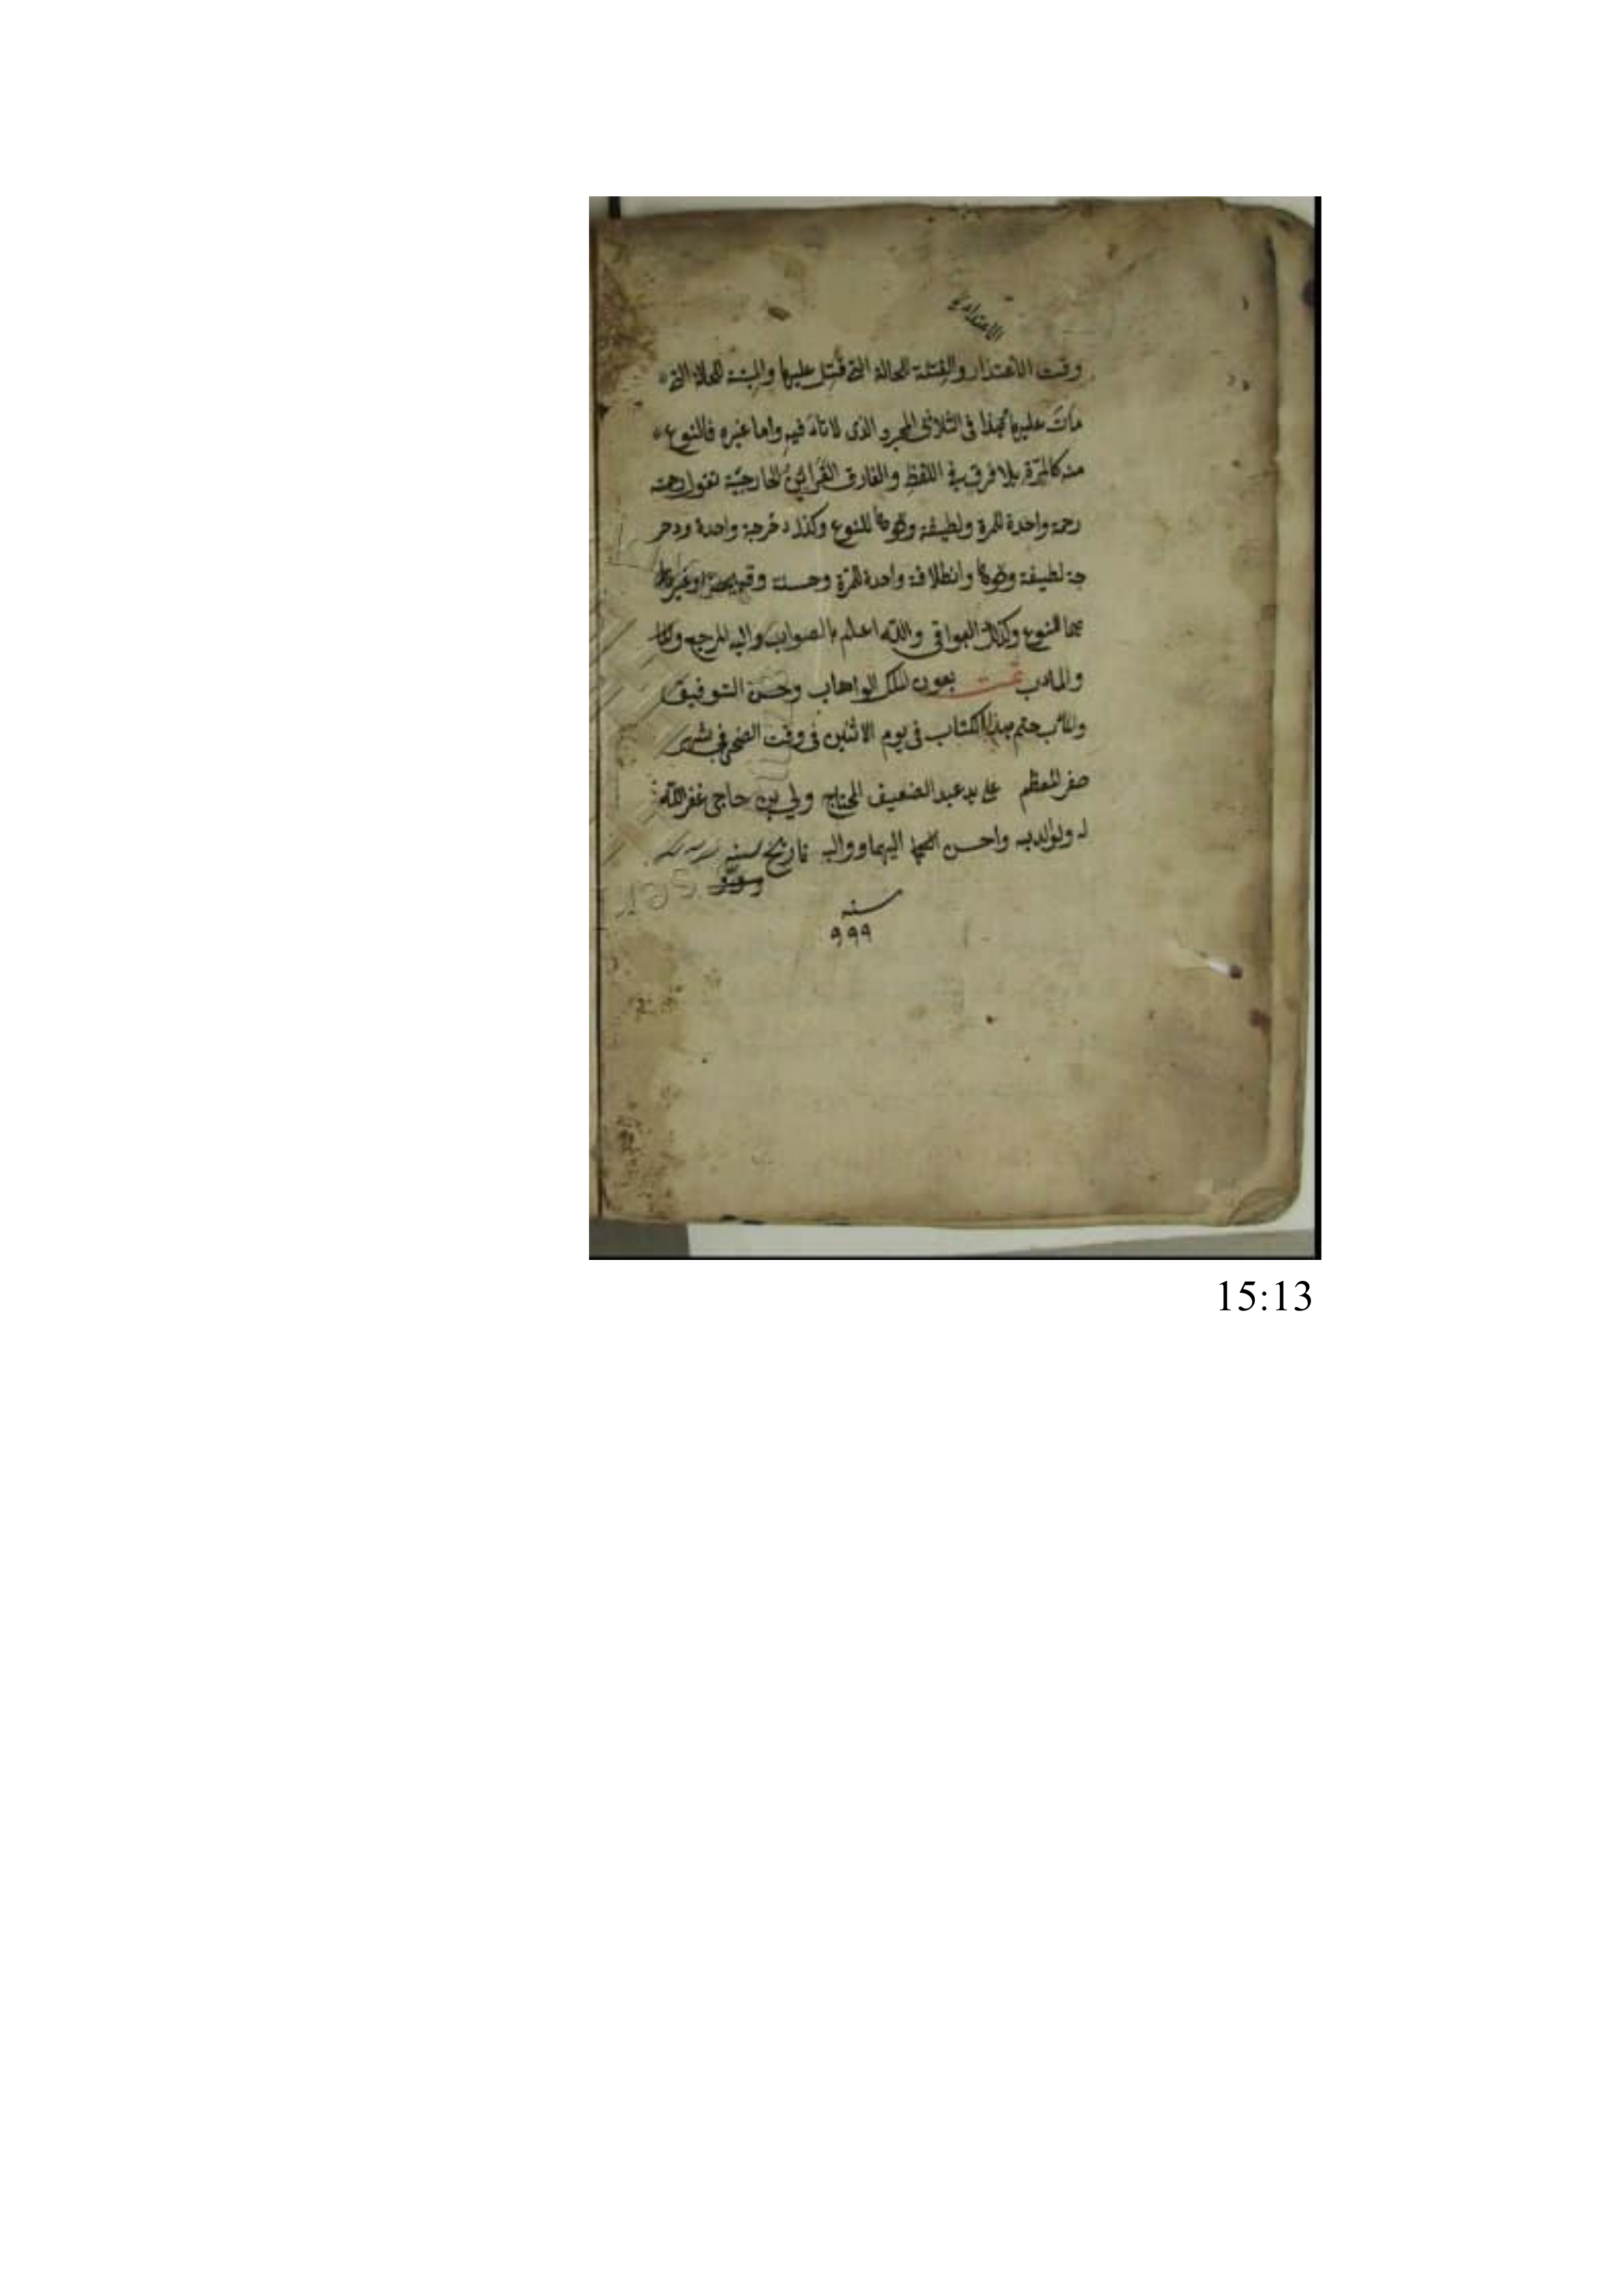 الاعتذار
وقت الاعتذار والقتلة للحالة التي قتل عليها والميتة للحالة التي
مات عليها هذا في الثلاثي المجرد الذي لا تاء فيه واما غيره فالنوع
منه كالمرة بلا فرق في اللفظ والفارق القرائن الخارجية تقول رحمته
رحمة واحدة للمرة ولطيفة ونحوها للنوع وكذا دحرجة واحدة ودحر
جة لطيفة ونحوها وانطلاقة واحدة للمرة وحسنة وقبيحة او غيرها
للنوع وكذلك البواقي والله اعلم بالصواب واليه المرجع
والمآب تمت بعون الملك الواهاب وحسن التوفيق
ختم هذا الكتاب في يوم الاثنين في وقت الضحى في شهر
صفر المعظم على يد عبد الضعيف المحتاج ولي بن حاجي غفر الله
له ولوالديه واحسن اليهما واليه تاريخ سنه
سنه
٩٩٩
15:13